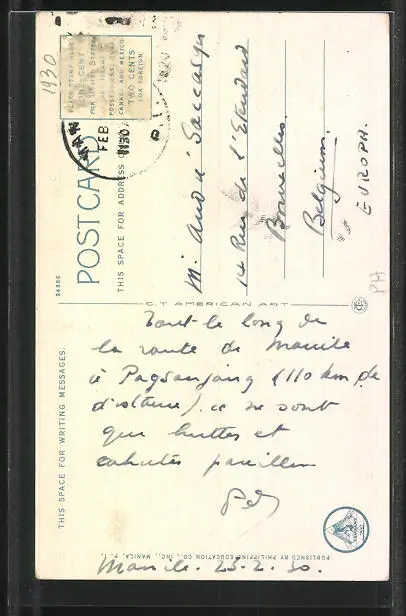 1930
PLACE STAMP HERE
ONE CENT
FOR UNITED STATES
POSSESSIONS, CUBA,
CANADA AND MEXICO
TWO CENTS
FOR FOREIGN
MAN
FEB
1930
P.I.
POST CARD
THIS SPACE FOR ADDRESS
M. André Saccasyn
14 Rue de l'Etendard
Bruxelles
Belgium.
EUROPH.
PH
C.T. AMERICAN ART
THIS SPACE FOR WRITING MESSAGES.
Tout le long de
la route de Manile
à Pagsanjang (110 km de
distance) ce ne sont
que huttes et
cahutes pareilles
Manile. 25-2.30.
PUBLISHED BY PHILIPPINE EDUCATION CO., INC., MANILA, P. I.